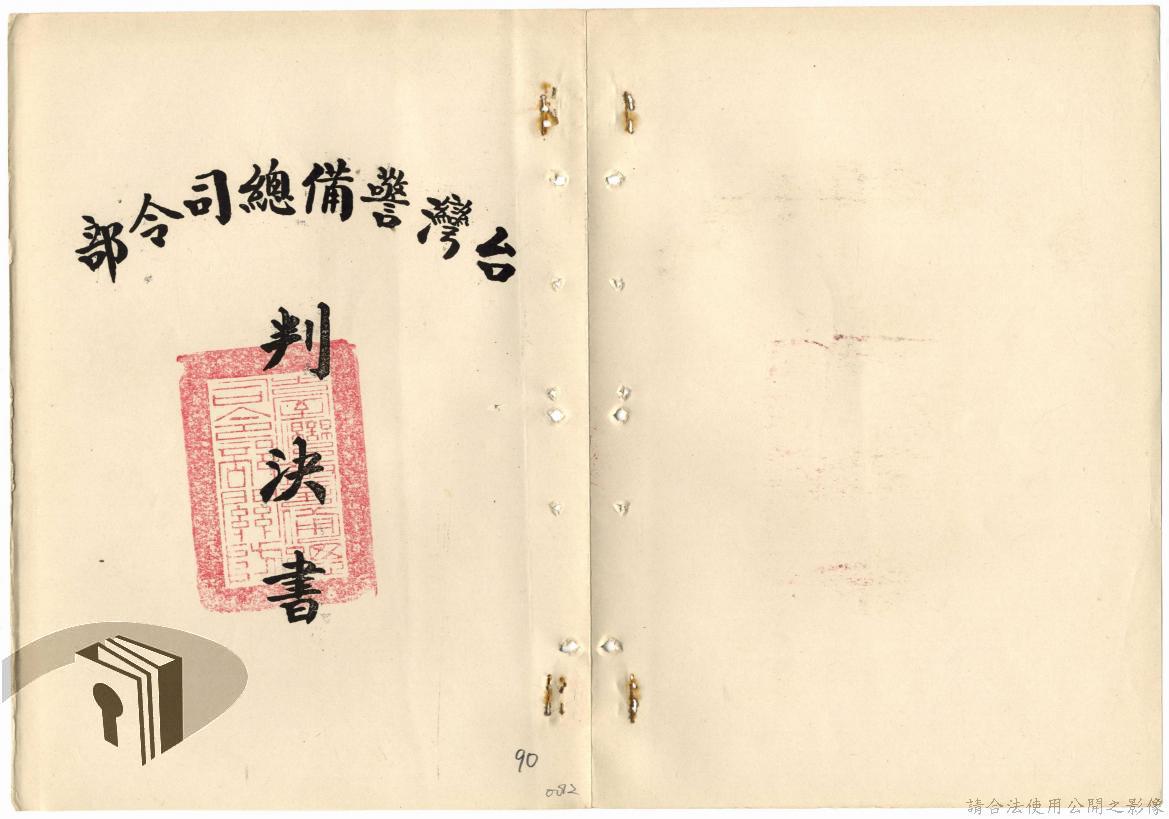 台灣警備總司令部
判決書
90
0082
請合法使用公開之影像